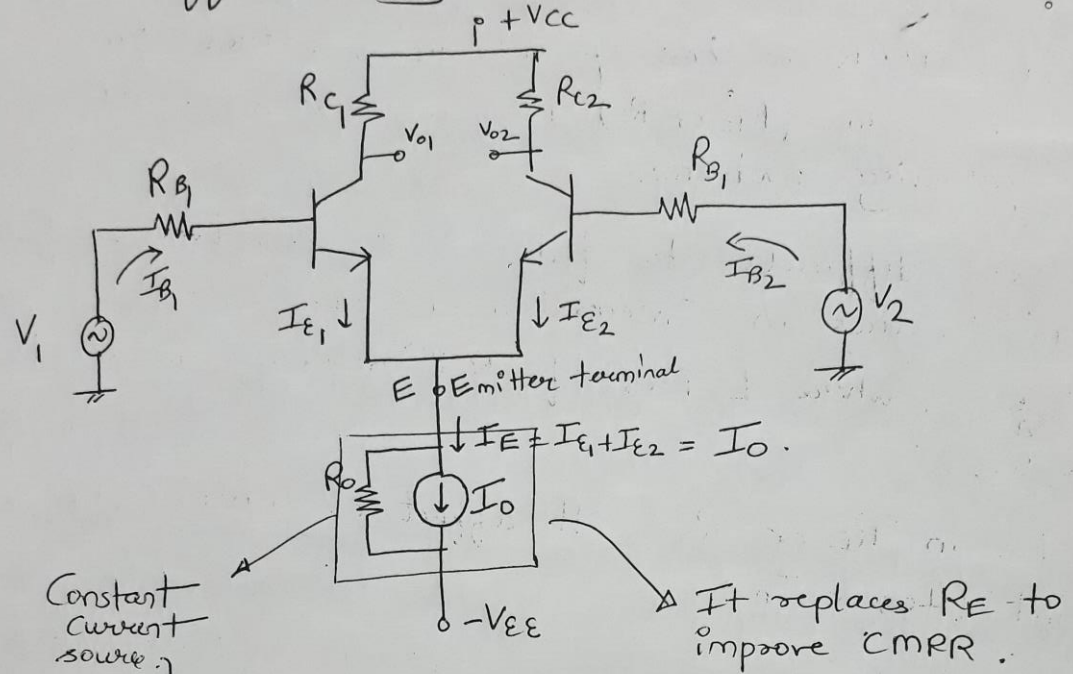 +VCC
RC1
RC2
Vo1
Vo2
RB1
RB1
IB1
IB2
V1
V2
IE1 ↓
↓ IE2
E Emitter terminal
↓ IE = IE1+IE2 = IO.
Ro
IO
Constant
current
source.
-VEE
It replaces RE to
improve CMRR.